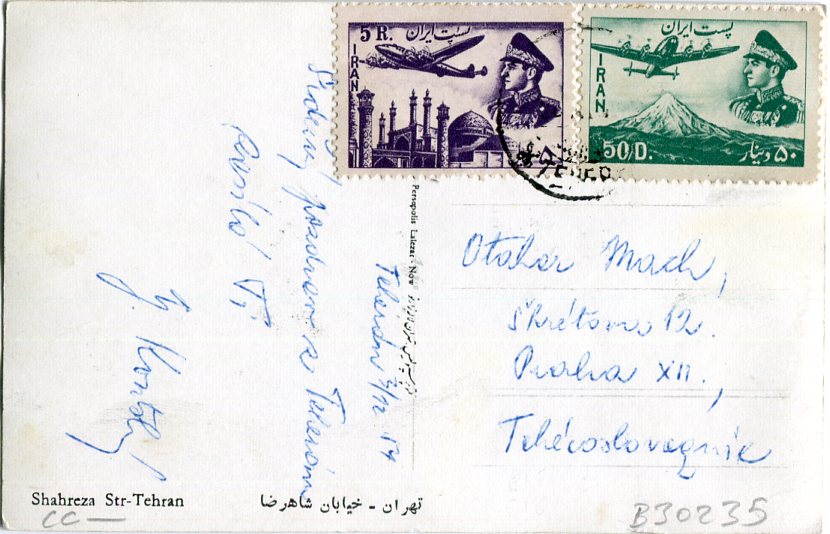 5 R.
پست ایران
IRAN
پست ایران
IRAN
50/D.
۵۰ دینار
Teherán 7/12 54
Srdečný pozdrav z Teheránu
posílá Ti
J.
Persepolis Lalezar Now
Otakar Mach,
Škrétova 12.
Praha XII.,
Tchécoslovaquie
Shahreza Str-Tehran
تهران - خیابان شاهرضا
CC —
B30235